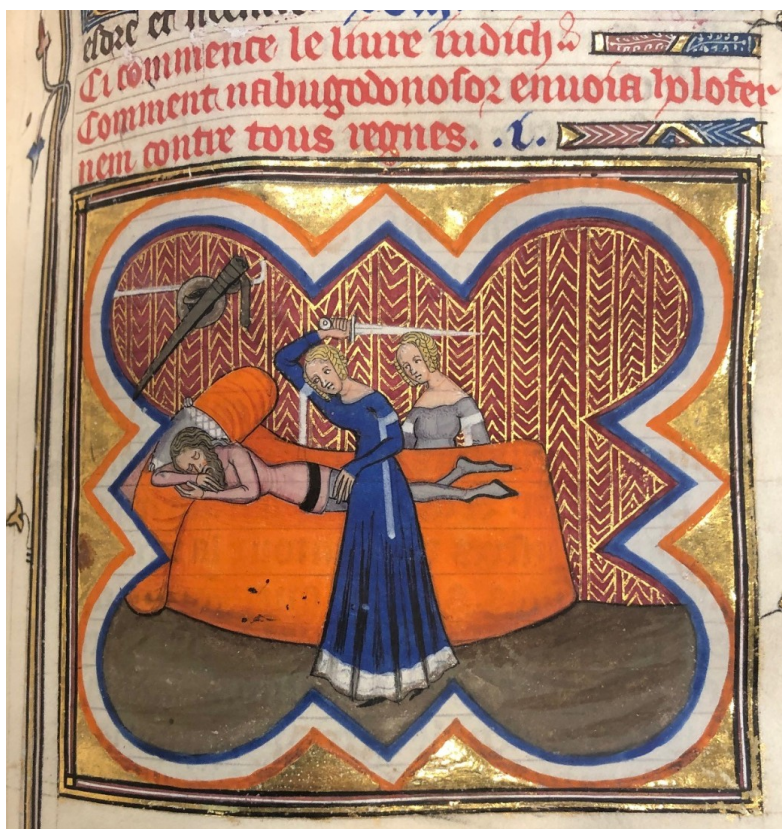 esdre et
Ci commence le liure iudich.
Comment nabugodonosor enuoia holofer
nem contre tous regnes. .i.